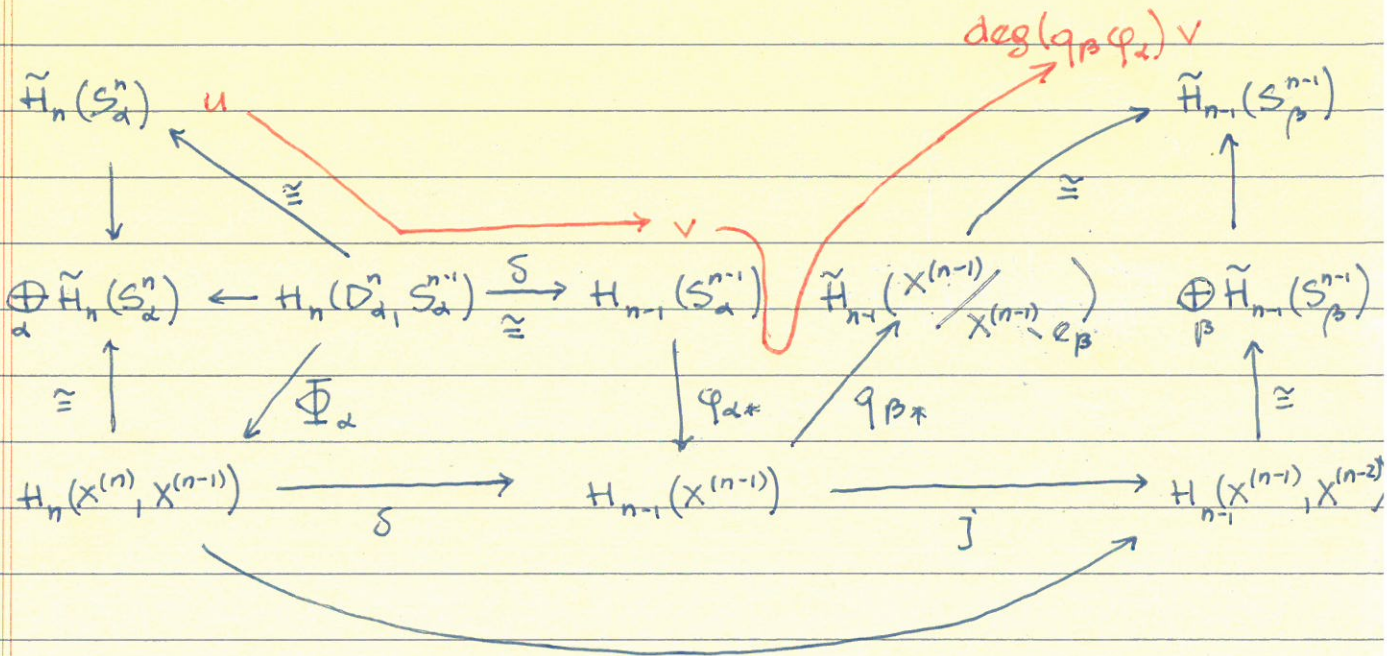 deg(q_β φ_α) v
H̃_n(S^n_α) u H̃_{n-1}(S^{n-1}_β)
≅ ≅
v
⊕_α H̃_n(S^n_α) ← H_n(D^n_α, S^{n-1}_α) —δ→ ≅ H_{n-1}(S^{n-1}_α) H̃_{n-1}(X^{(n-1)}/X^{(n-1)} \ e_β) ⊕_β H̃_{n-1}(S^{n-1}_β)
≅ Φ_α φ_{α*} q_{β*} ≅
H_n(X^{(n)}, X^{(n-1)}) —δ→ H_{n-1}(X^{(n-1)}) —j→ H_{n-1}(X^{(n-1)}, X^{(n-2)})